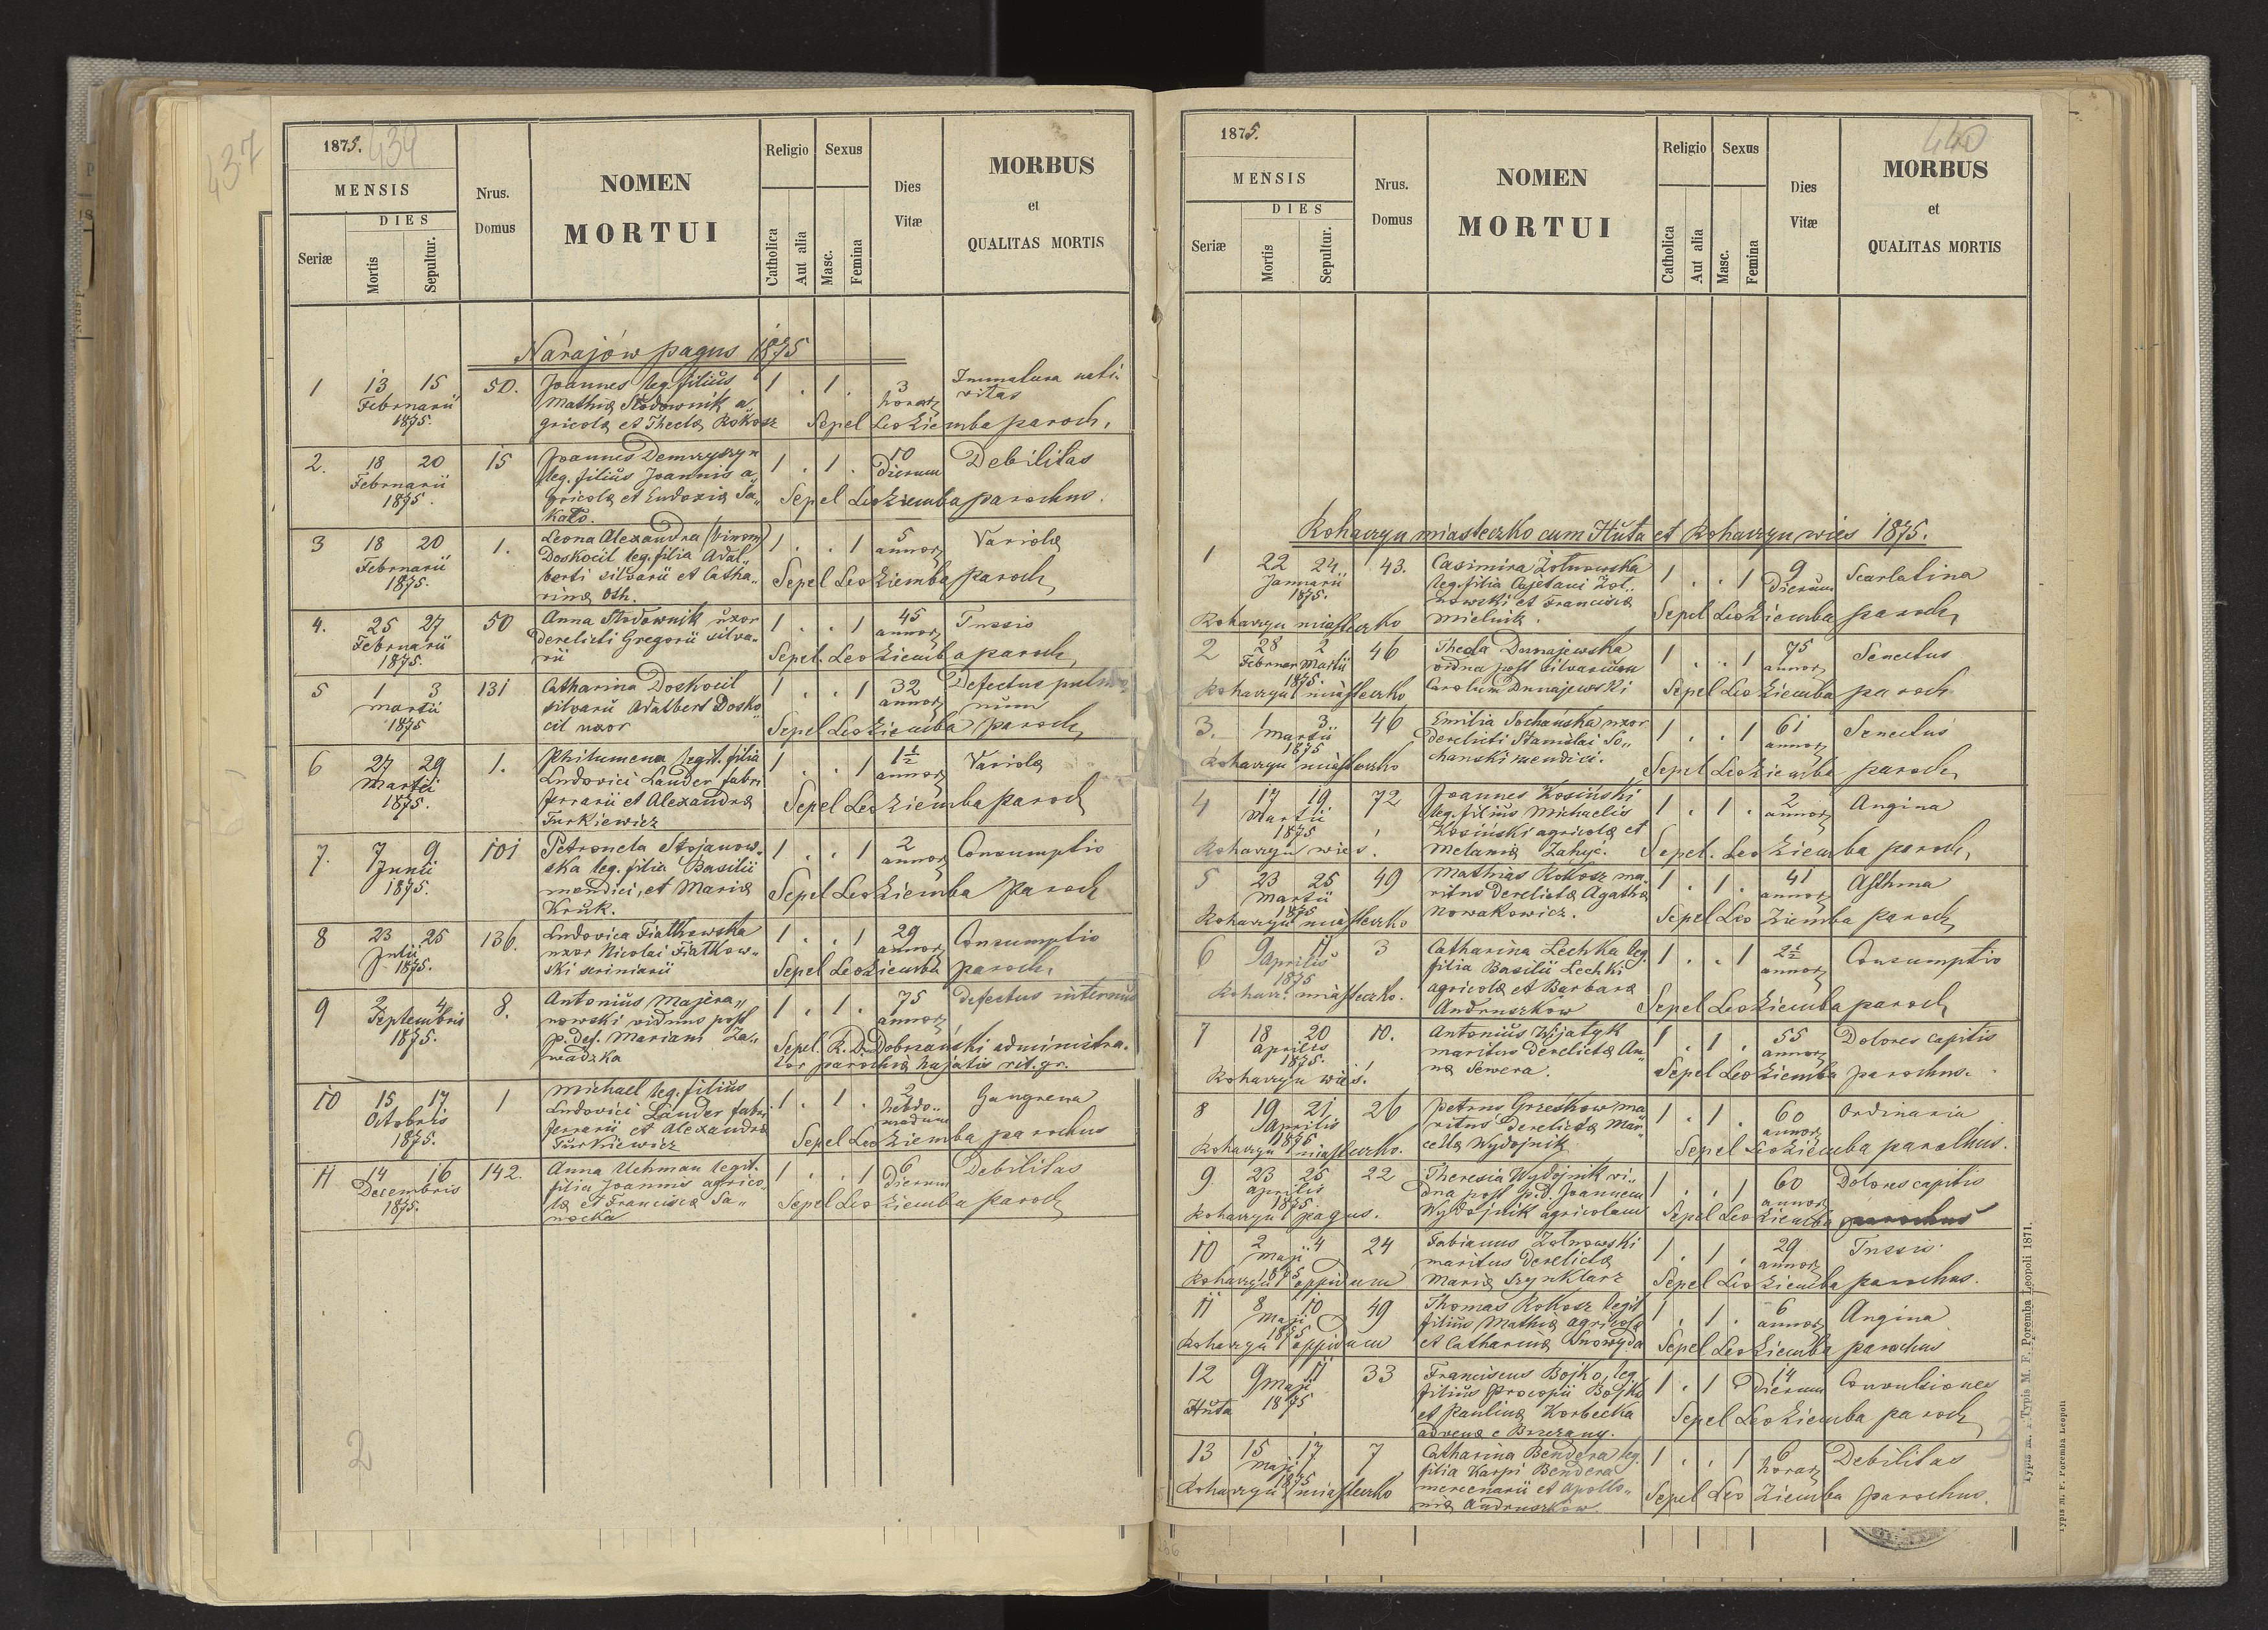 437
1875. 439
MENSIS
DIES
Seriæ
Mortis
Sepultur.
Nrus.
Domus
NOMEN
MORTUI
Religio
Catholica
Aut alia
Sexus
Masc.
Femina
Dies
Vitæ
MORBUS
et
QUALITAS MORTIS
Narajów pagus 1875
1 13 15 50. Joannes leg. filius 1 . 1 . 3 Immatura nati-
Februarii Mathiæ Stodownik a horar vitas
1875. gricolæ et Theclæ Rokosz Sepel Leo Ziemba paroch.
2. 18 20 15 Joannes Demczyszyn 1 . 1 . 10 Debilitas
Februarii leg. filius Joannis a„ Dierum
1875. gricolæ et Eudoxiæ Sa„ Sepel Leo Ziemba parochus.
kato.
3 18 20 1. Leona Alexandra (binom) 1 . . 1 5 Variola
Februarii Doskocil leg. filia Adal„ annor
1875. berti silvarii et Catha„ Sepel Leo Ziemba paroch
rinæ Oth.
4. 25 27 50 Anna Stodownik uxor 1 . . 1 45 Tussis
Februarii derelicti Gregorii silva„ annor
1875. rii Sepel. Leo Ziemba paroch
5 1 3 131 Catharina Doskocil 1 . . 1 32 Defectus pulmo
martii silvarii Adalbert Dosko„ annor num
1875 cil uxor Sepel Leo Ziemba paroch
6 27 29 1. Philumena legit. filia 1 . . 1 1½ Variola
Martii Ludovici Lauder fabri annor
1875. ferrarii et Alexandræ Sepel Leo Ziemba paroch
Turkiewicz
7. 7 9 101 Petronela Stojanow„ 1 . . 1 2 Consumptio
Junii ska leg. filia Basilii annor
1875. mendici, et Mariæ Sepel Leo Ziemba paroch
Kruk.
8 23 25 136. Ludovica Fiatkowska 1 . . 1 29 Consumptio
Julii uxor Nicolai Fiatkow„ annor
1875. ski scriniarii Sepel Leo Ziemba paroch.
9 2 4 8. Antonius Majera„ 1 . 1 . 75 Defectus internus
Septembris nowski viduus post annor
1875. p. def. Mariam Za„ Sepel. R. D. Dobrzański administra-
wadzka tor parochiæ hujatis rit. gr.
10 15 17 1 Michael leg. filius 1 . 1 . 2 Gangrena
Octobris Ludovici Lauder fabri hebdo„
1875. ferrarii et Alexandræ madum
Turkiewicz Sepel Leo Ziemba parochus
11 14 16 142. Anna Uchman legit. 1 . . 1 6 Debilitas
Decembris filia Joannis agrico„ Dierum
1875. læ et Franciscæ Sa„ Sepel Leo Ziemba paroch
nocka
2
1875. 440
MENSIS
DIES
Seriæ
Mortis
Sepultur.
Nrus.
Domus
NOMEN
MORTUI
Religio
Catholica
Aut alia
Sexus
Masc.
Femina
Dies
Vitæ
MORBUS
et
QUALITAS MORTIS
Rohaczyn miasteczko cum Huta et Rohaczyn wies 1875.
1 22 24 43. Casimira Zotnowska 1 . . 1 9 Scarlatina
Januarii leg. filia Cajetani Zot„ Dierum
1875. nowski et Franciscæ
Rohaczyn miasteczko Mielnik. Sepel Leo Ziemba paroch
2 28 2 46 Thecla Dunajewska 1 . . 1 75 Senectus
Februar Martii vidua post silvarium annor
1875.
Rohaczyn miasteczko Carolum Dunajewski Sepel Leo Ziemba paroch
3. 1 3 46 Emilia Sochańska uxor 1 . . 1 61 Senectus
martii derelicti Stanislai So„ annor
1875
Rohaczyn miasteczko chanski mendici. Sepel Leo Ziemba paroch
4 17 19 72 Joannes Kosiński 1 . 1 . 2 Angina
Martii leg. filius Michaelis annor
1875 Kosiński agricolæ et
Rohaczyn wies. Melaniæ Zahyć. Sepel. Leo Ziemba paroch
5 23 25 49 Mathias Rokosz ma„ 1 . 1 . 41 Asthma
Martii ritus derelictæ Agathæ annor
1875
Rohaczyn miasteczko Nowakowicz. Sepel Leo Ziemba paroch
6 9 11 3 Catharina Lechka leg. 1 . . 1 2½ Consumptio
Aprilis filia Basilii Lechki annor
1875 agricolæ et Barbara
Rohacz. miasteczko. Andruszkow Sepel Leo Ziemba paroch
7 18 20 10. Antonius Wijatyk 1 . 1 . 55 Dolores capitis
Aprilis maritus derelictæ An„ annor
1875. næ Sewera.
Rohaczyn wieś. Sepel Leo Ziemba parochus.
8 19 21 26 Petrus Grześkow ma 1 . 1 . 60 Ordinaria
Aprilis ritus derelictæ Mar„ annor
1875
Rohaczyn miasteczko. cellæ Wydojnik Sepel Leo Ziemba parochus.
9 23 25 22 Theresia Wydojnik vi„ 1 . . 1 60 Dolores capitis
Aprilis dua post p. d. Joannem annor
1875.
Rohaczyn pagus. Wydojnik agricolam Sepel Leo Ziemba parochus
10 2 4 24 Fabianus Zotnowski 1 . 1 . 29 Tussis
Maji maritus derelictæ annor
1875
Rohaczyn oppidum Mariæ Szynklarz Sepel Leo Ziemba parochus.
11 8 10 49 Thomas Rokosz legit 1 . 1 . 6 Angina
Maji filius Mathiæ agricolæ annor
1875
Rohaczyn oppidum et Catharinæ Snowyda Sepel Leo Ziemba parochus
12 9 11 33 Franciscus Bojko, leg. 1 . 1 . 14 Convulsiones
Maji filius Procopii Bojko Dierum
Huta 1875 et Paulinæ Korbecka Sepel Leo Ziemba paroch
advena e Brzezany.
13 15 17 7 Catharina Bendera leg. 1 . . 1 6 Debilitas
Maji filia Karpi Bendera horar
1875
Rohaczyn miasteczko mercenarii et Apollo„ Sepel Leo Ziemba parochus.
niæ Andruszkow.
Typis M. F. Poremba Leopoli 1871.
Typis M. F. Poremba Leopoli